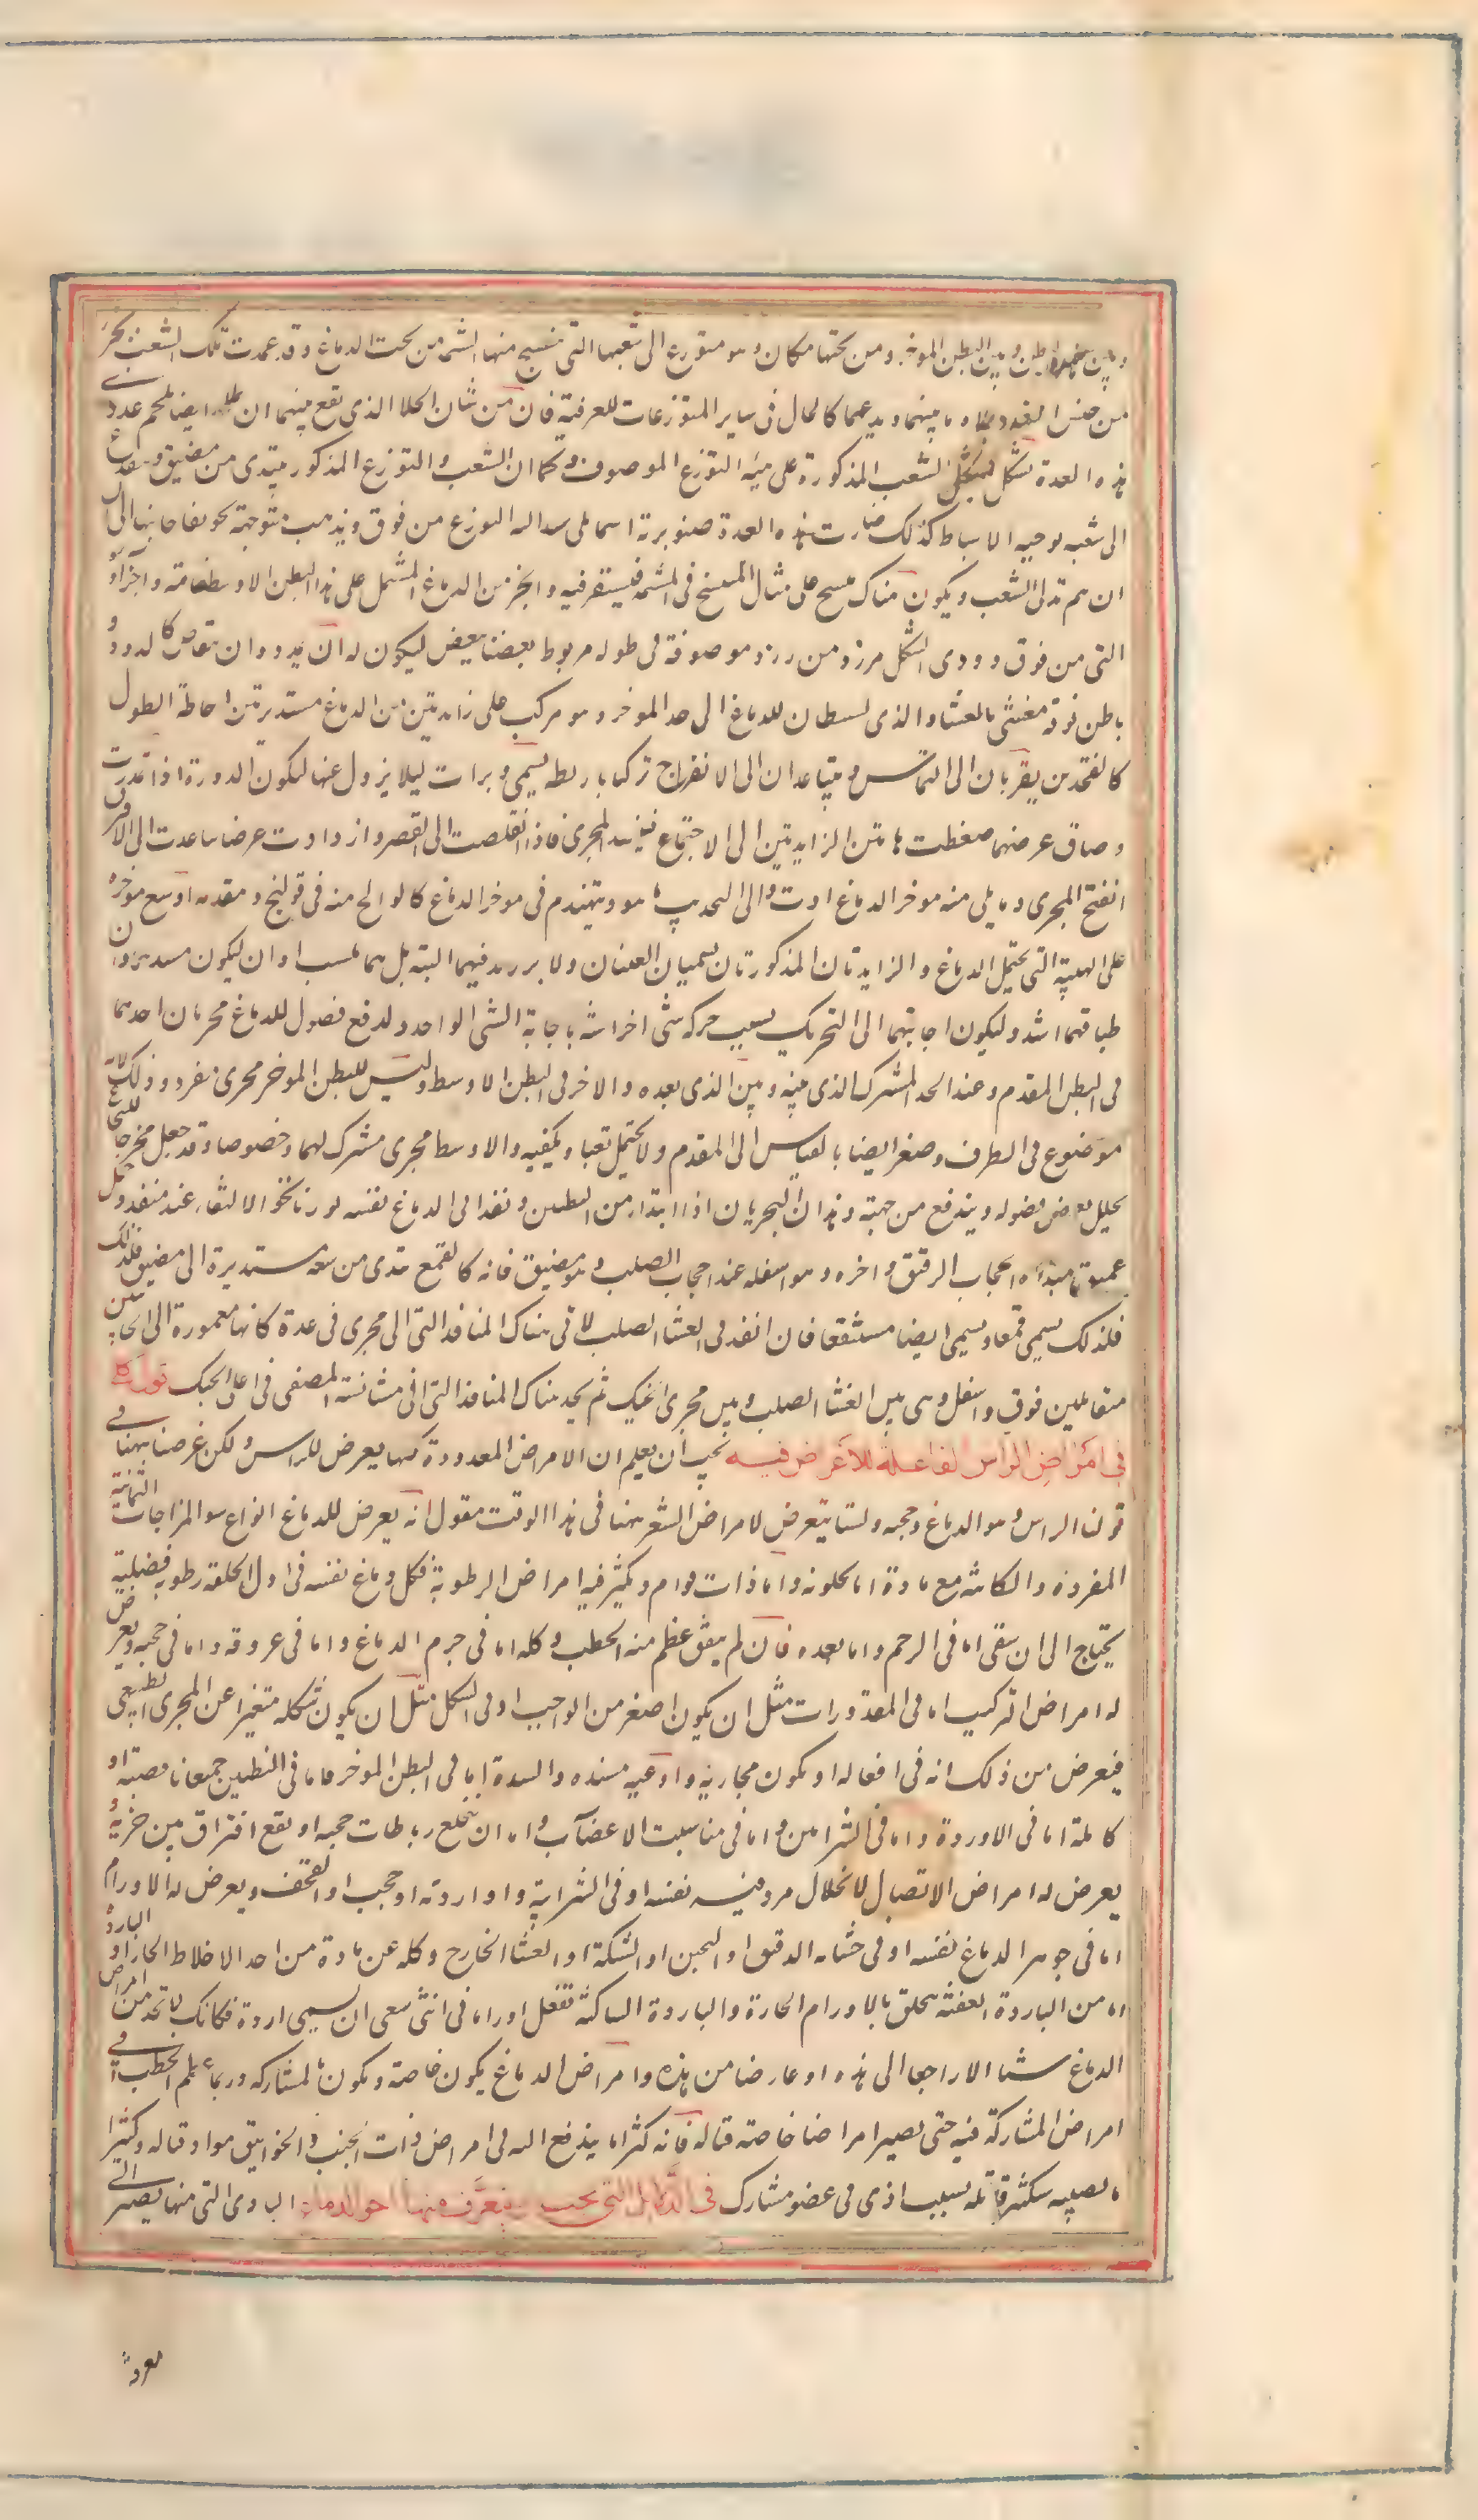 وبين هذا البطن وبين البطن المؤخر ومن تحتها مكان وهو متوزع الى شعبها التى تنتسج منها المشيمة من تحت الدماغ وقد عمدت تلك الشعب بجرم
من جنس الغدد يملاء ما بينهما ويدعمها كالحال فى ساير المتوزعات للعرقية فان من شان الخلا الذى يقع بينهما ان يملاء ايضا بلحم غددى
هذه الغدة تتشكل بشكل الشعب المذكورة على هيئة التوزع الموصوف وكما ان الشعب والتوزع المذكور يبتدى من مضيق ويتفرع
الى شعبه يوجبه الانبساط كذلك صارت هذه الغدة صنوبرية راسها يلى مبدا التوزع من فوق ويذهب متوجهة نحو غايتها الى
ان يتم تدلى الشعب ويكون هناك منتسج على مثال المنتسج فى المشيمة فيستقر فيه والجزء من الدماغ المشتمل على هذا البطن الاوسط عامته واجزاؤه
التى من فوق دودى الشكل مزرد من زرد موصوفة فى طوله مربوط بعضها ببعض ليكون له ان يتمدد وان يتقلص كالدود و
باطن فوقه مغشى بالغشاء الذى يستبطن الدماغ الى حد المؤخر وهو مركب على زايدتين من الدماغ مستديرتين احاطة الطول
كالفخذين يقربان الى التماس ويتباعدان الى الانفراج تركيبا باربطة يسمى وترات ليلا يزول عنها ليكون الدودة اذا تمددت
وضاق عرضها ضغطت هاتين الزايدتين الى الاجتماع فينسد المجرى فاذا تقلصت الى القصر وازدادت عرضا تباعدت الى الافتراق
انفتح المجرى وما يلى منه مؤخر الدماغ ادق والى التحديب ما هو ويتهندم فى مؤخر الدماغ كالوالج منه فى مولج ومقدمه اوسع من مؤخره
على الهيئة التى يحتمل الدماغ والزايدتان المذكورتان يسميان العنبتان ولا تزريد فيهما البتة بل هما ملسا وان ليكون سدهما و
طباقهما اشد وليكون اجابتهما الى التحريك بسبب حركة شى اخر اشبه باجابة الشى الواحد ولدفع فضول الدماغ مجريان احدهما
فى البطن المقدم وعند الحد المشترك الذى بينه وبين الذى بعده والاخر فى البطن الاوسط وليس للبطن المؤخر مجرى مفرد وذلك لانه
موضوع فى الطرف وصغر ايضا بالقياس الى المقدم ولا يحتمل ثقبا ويكفيه والاوسط مجرى مشترك لهما وخصوصا وقد جعل مخرجا للنخاع
يتحلل بعض فضوله ويندفع من جهته وهذان المجريان اذا ابتدا من البطنين ونفذا فى الدماغ نفسه توربا نحو الالتقاء عند منفذ واحد
عميق مبداه الحجاب الرقيق واخره وهو اسفله عند الحجاب الصلب وهو مضيق فانه كالقمع يبتدى من سعة مستديرة الى مضيق فلذلك
فلذلك يسمى قمعا ويسمى ايضا مستنقعا فاذا نفذ فى الغشا الصلب لاقى هناك المنافذ التى الى مجرى فى غدة كانها مغمورة الى الجانبين
متقابلين فوق واسفل وهى بين الغشا الصلب وبين مجرى الحنك ثم يجد هناك المنافذ التى فى مشاشة المصفى فى اعلى الحنك قول كلى
فى امراض الراس الفاعلة للاعراض فيه يجب ان يعلم ان الامراض المعدودة كلها يعرض للراس ولكن غرضنا ههنا فى
قولنا الراس وهو الدماغ وحجبه ولسنا نتعرض لامراض الشعر ههنا فى هذا الوقت فنقول انه يعرض للدماغ انواع سوء المزاجات الثمانية
المفردة والكائنة مع مادة اما كلونه واما ذات قوام وتكثر فيه امراض الرطوبة فكل دماغ نفسه فى اول الخلقة رطوبة فضلية
يحتاج الى ان ينقى اما فى الرحم واما بعده فان لم ينق عظم منه الخطب وكله اما فى جرم الدماغ واما فى عروقه واما فى حجبه ويعرض
له امراض التركيب اما فى المقدورات مثل ان يكون اصغر من الواجب او فى الشكل مثل ان يكون شكله متغيرا عن المجرى الطبيعى
فيعرض من ذلك افة فى افعاله او يكون مجاريه واوعيته منسده والسدة اما فى البطن المؤخر واما فى البطنين جميعا ناقصة او
كاملة اما فى الاوردة واما فى الشرايين واما فى منابت الاعصاب واما ان ينخلع رباطات حجبه او يقع افتراق بين جزئيه و
يعرض له امراض الاتصال لانحلال فرد فيه نفسه او فى الشرايين واوردته او حجبه او القحف ويعرض له الاورام
اما فى جوهر الدماغ نفسه او فى غشائه الرقيق او الثخين او الشبكة او الغشا الخارج وكله عن مادة من احد الاخلاط الحارة او الباردة
اما من الباردة العفنة يلحق بالاورام الحارة والباردة الساكنة تفعل اوراما هى التى ينبغى ان يسمى باردة فكانك لا تجد من امراض
الدماغ شيئا الا راجعا الى هذه او عارضا من هذه وامراض الدماغ يكون خاصة ويكون بالمشاركة وربما عظم الخطب فى
امراض المشاركة فيه حتى يصير امراضا خاصة قتالة فانه كثيرا ما يندفع اليه فى امراض ذات الجنب والخوانيق مواد قتالة وكثيرا
ما يصيبه سكتة قاتلة بسبب اذى فى عضو مشارك فى الدلائل التى يجب ان يتعرف منها احوال الدماغ المبادى التى منها يصير الى